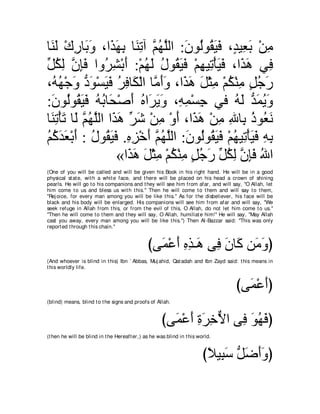 مِنْ بَعِيدٍ، فَيَقُولُونَ: اللَّهُمَّ أْتِنَا بِهَذَا، وَبَارِكْ لَنَا
فِي هَذَا، فَيَأْتِيهِمْ فَيَقُولُ لَهُمْ: أَبْشِرُوا فَإِنَّ لِكُلِّ
رَجُلٍ مِنْكُمْ مِثْلَ هَذَا، وَأَمَّا الْكَافِرُ فَيَسْوَدُّ وَجْهُهُ،
وَيُمَدُّ لَهُ فِي جِسْمِهِ، وَيَرَاهُ أَصْحَابُهُ فَيَقُولُونَ:
نَعُوذُ بِاللهِ مِنْ هَذَا، أَوْ مِنْ شَرِّ هَذَا اللَّهُمَّ لَا تَأْتِنَا
بِهِ فَيَأْتِيهِمْ فَيَقُولُونَ: اللَّهُمَّ أَخْزِهِ. فَيَقُولُ : أَبْعَدَكُمُ
اللهُ فَإِنَّ لِكُلِّ رَجُلٍ مِنْكُمْ مِثْلَ هَذَا»
(One of you will be called and will be given his Book in his right hand. He will be in a good
physical state, with a white face, and there will be placed on his head a crown of shining
pearls. He will go to his companions and they will see him from afar, and will say, "O Allah, let
him come to us and bless us with this.'' Then he will come to them and will say to them,
"Rejoice, for every man among you will be like this.'' As for the disbeliever, his face will be
black and his body will be enlarged. His companions will see him from afar and will say, "We
seek refuge in Allah from this, or from the evil of this, O Allah, do not let him come to us.''
"Then he will come to them and they will say, O Allah, humiliate him!'' He will say, "May Allah
cast you away, every man among you will be like this.'') Then Al-Bazzar said: "This was only
reported through this chain.''
(وَمَن كَانَ فِى هَـذِهِ أَعْمَى)
(And whoever is blind in this) Ibn `Abbas, Mujahid, Qatadah and Ibn Zayd said: this means in
this worldly life.
(أَعْمَى)
(blind) means, blind to the signs and proofs of Allah.
(فَهُوَ فِى الاٌّخِرَةِ أَعْمَى)
(then he will be blind in the Hereafter,) as he was blind in this world.
(وَأَضَلُّ سَبِيلاً)